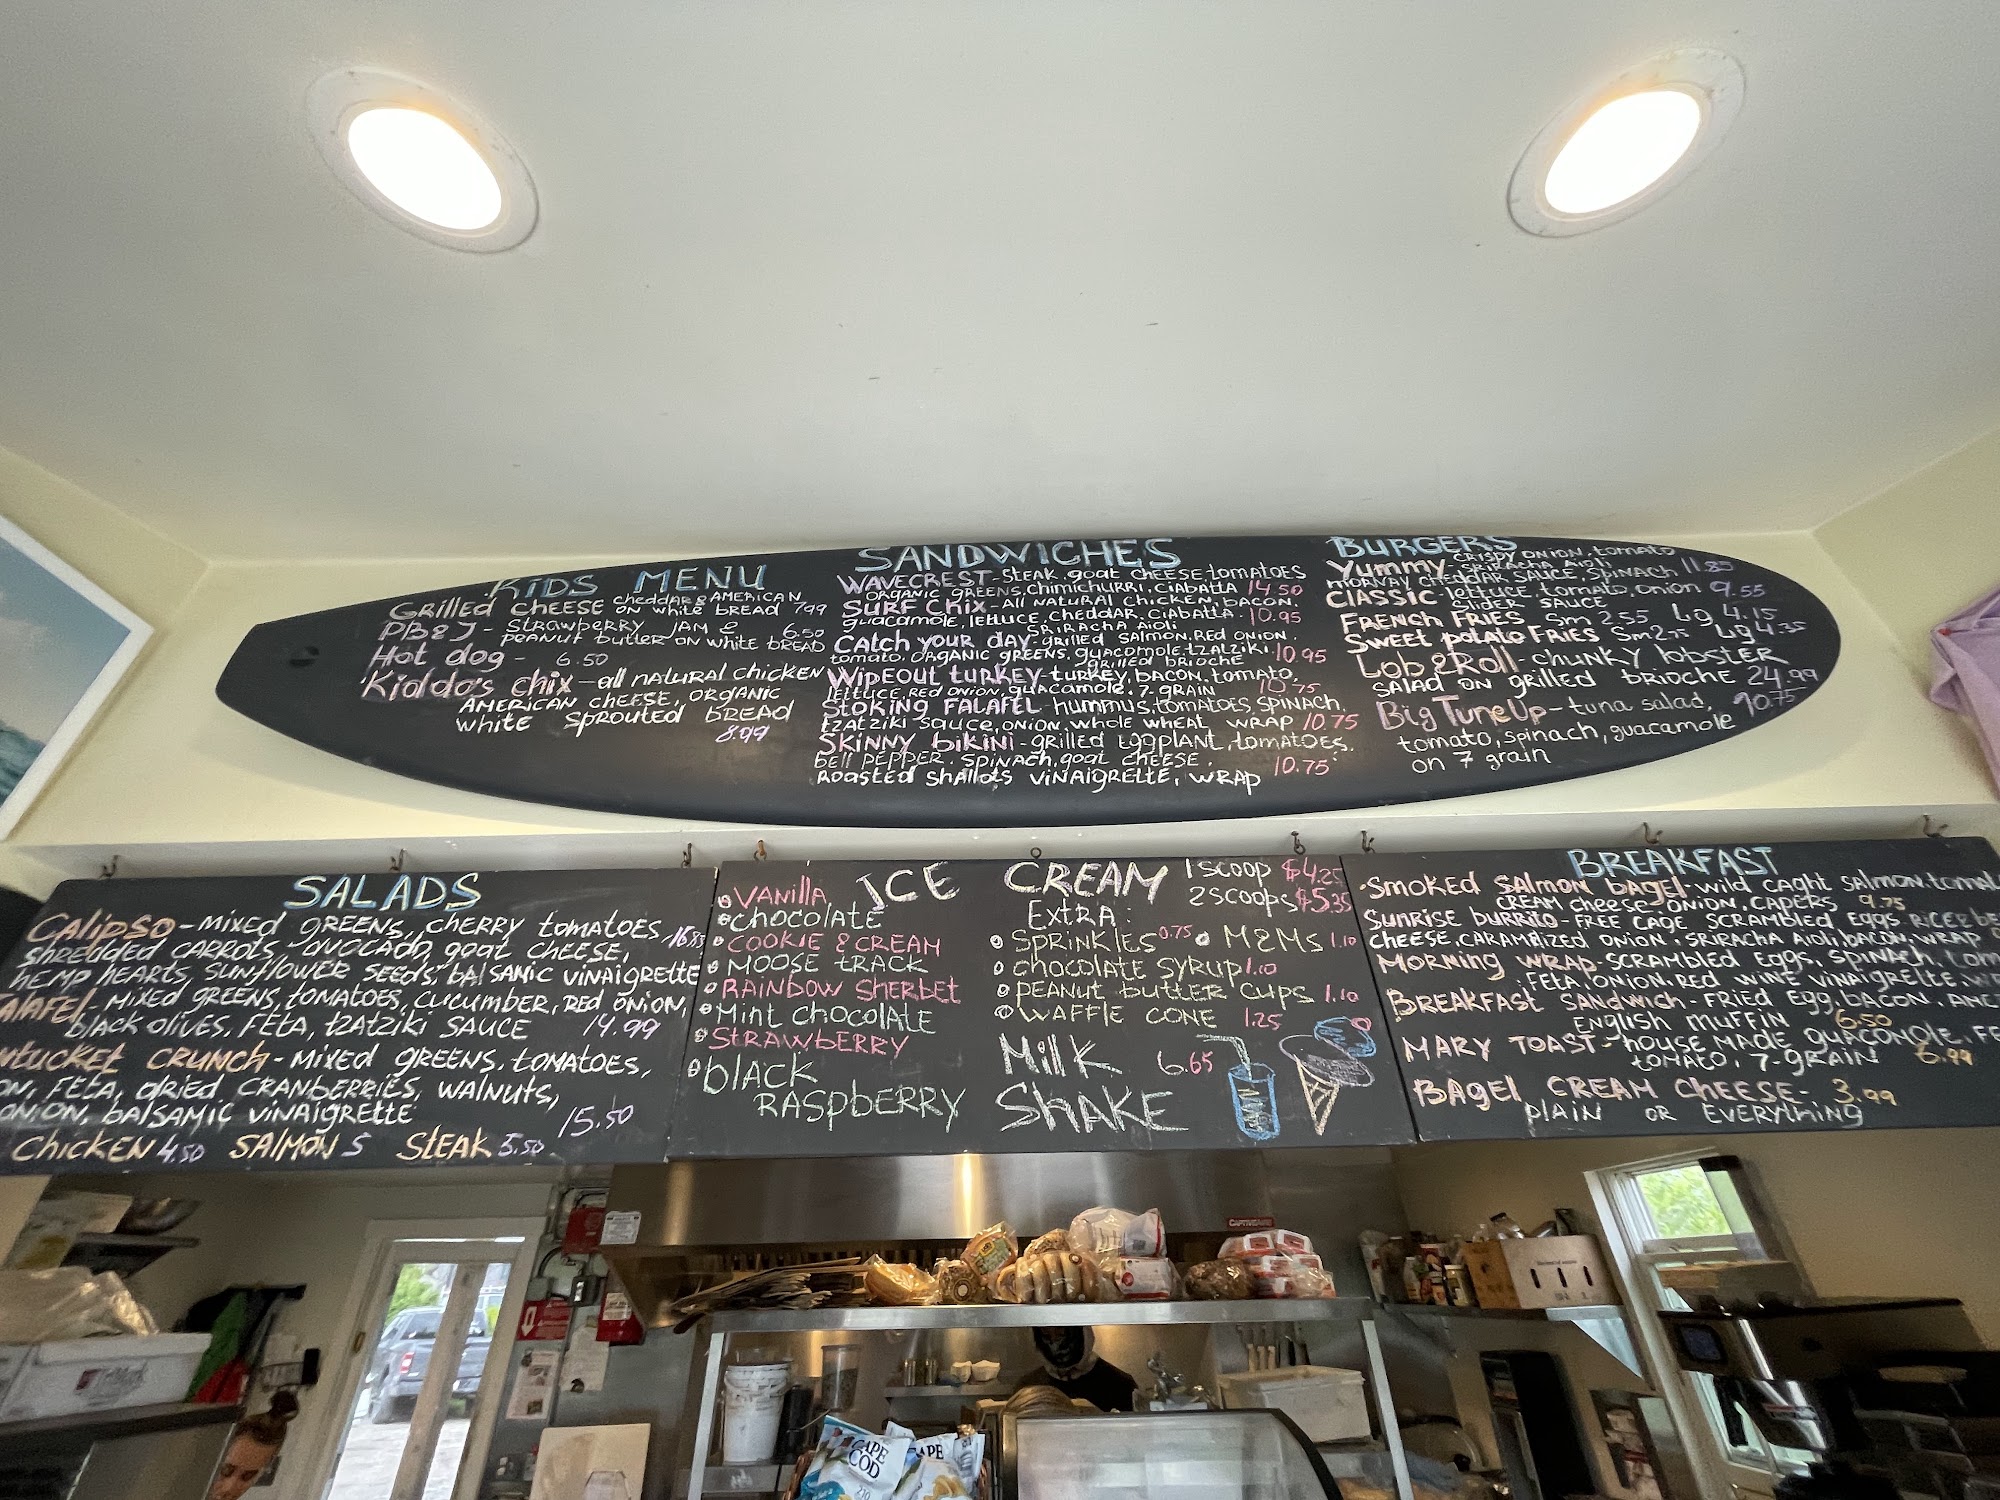 KIDS MENU
GRILLED CHEESE cheddar & AMERICAN
ON white BREAD 7.99
PB&J - Strawberry JAM &
peanut butter ON white BREAD 6.50
Hot dog - 6.50
Kiddo's chix - all natural chicken
AMERICAN CHEESE, ORGANIC
white sprouted BREAD
8.99
SANDWICHES
WAVECREST - Steak, goat cheese, tomatoes
ORGANIC GREENS, Chimichurri, Ciabatta 14.50
SURF Chix - All Natural Chicken, bacon,
guacamole, lettuce, cheddar, ciabatta, 10.95
SRIRACHA Aioli
CATCH YOUR DAY - grilled salmon, RED ONION,
tomato, ORGANIC GREENS, guacomole, tzatziki 10.95
grilled brioche
WIPEOUT turkey - turkey, bacon, tomato,
Lettuce, Red onion, guacamole, 7-grain 10.75
STOKING FALAFEL - hummus, tomatoes, spinach,
tzatziki sauce, onion, whole wheat wrap 10.75
SKINNY bikini - grilled eggplant, tomatoes,
bell PEPPER, spinach, goat cheese,
Roasted shallots vinaigrette, WRAP 10.75
BURGERS
Yummy - CRISPY ONION, tomato
SRIRACHA AIOLI
MORNAY CHEDDAR SAUCE, SPINACH 11.85
CLASSIC - lettuce, tomato, onion 9.55
Slider SAUCE
FRENCH FRIES Sm 2.55 Lg 4.15
SWEET potato FRIES Sm 2.75 Lg 4.35
Lob & Roll - chunky lobster
SALAD ON grilled brioche 24.99
Big Tune Up - tuna salad, 10.75
tomato, spinach, guacamole
on 7 grain
SALADS
CALIPSO - MIXED GREENS, CHERRY tomatoes,
shredded CARROTS, avocado, goat cheese,
hemp hearts, sunflower seeds, balsamic vinaigrette
MIXED GREENS, TOMATOES, CUCUMBER, RED ONION,
black olives, FETA, tzatziki SAUCE 14.99
CRUNCH - MIXED GREENS, TOMATOES,
FETA, dried CRANBERRIES, walnuts,
ONION, balsamic vinaigrette 15.50
CHICKEN 4.50 SALMON 5 STEAK 5.50
ICE CREAM 1 scoop $4.25
2 scoops $5.35
VANILLA
chocolate
COOKIE & CREAM
MOOSE TRACK
RAINBOW SHERBET
Mint chocolate
STRAWBERRY
black
RASPBERRY
EXTRA:
SPRINKLES 0.75 M&Ms 1.10
chocolate syrup 1.10
PEANUT butter cups 1.10
WAFFLE CONE 1.25
Milk 6.65
SHAKE
BREAKFAST
Smoked Salmon bagel - wild caght salmon,
CREAM cheese, onion, capers 9.75
SUNRISE burrito - FREE CAGE scrambled eggs,
cheese, caramelized onion, sriracha aioli, bacon, wrap
MORNING WRAP - scrambled eggs, spinach,
FETA, onion, red wine vinaigrette,
BREAKFAST Sandwich - Fried egg, bacon,
ENGLISH muffin 6.50
MARY TOAST - house made guacomole,
tomato, 7-grain 6.99
BAGEL CREAM CHEESE - 3.99
PLAIN OR EVERYTHING
CAPE
COD